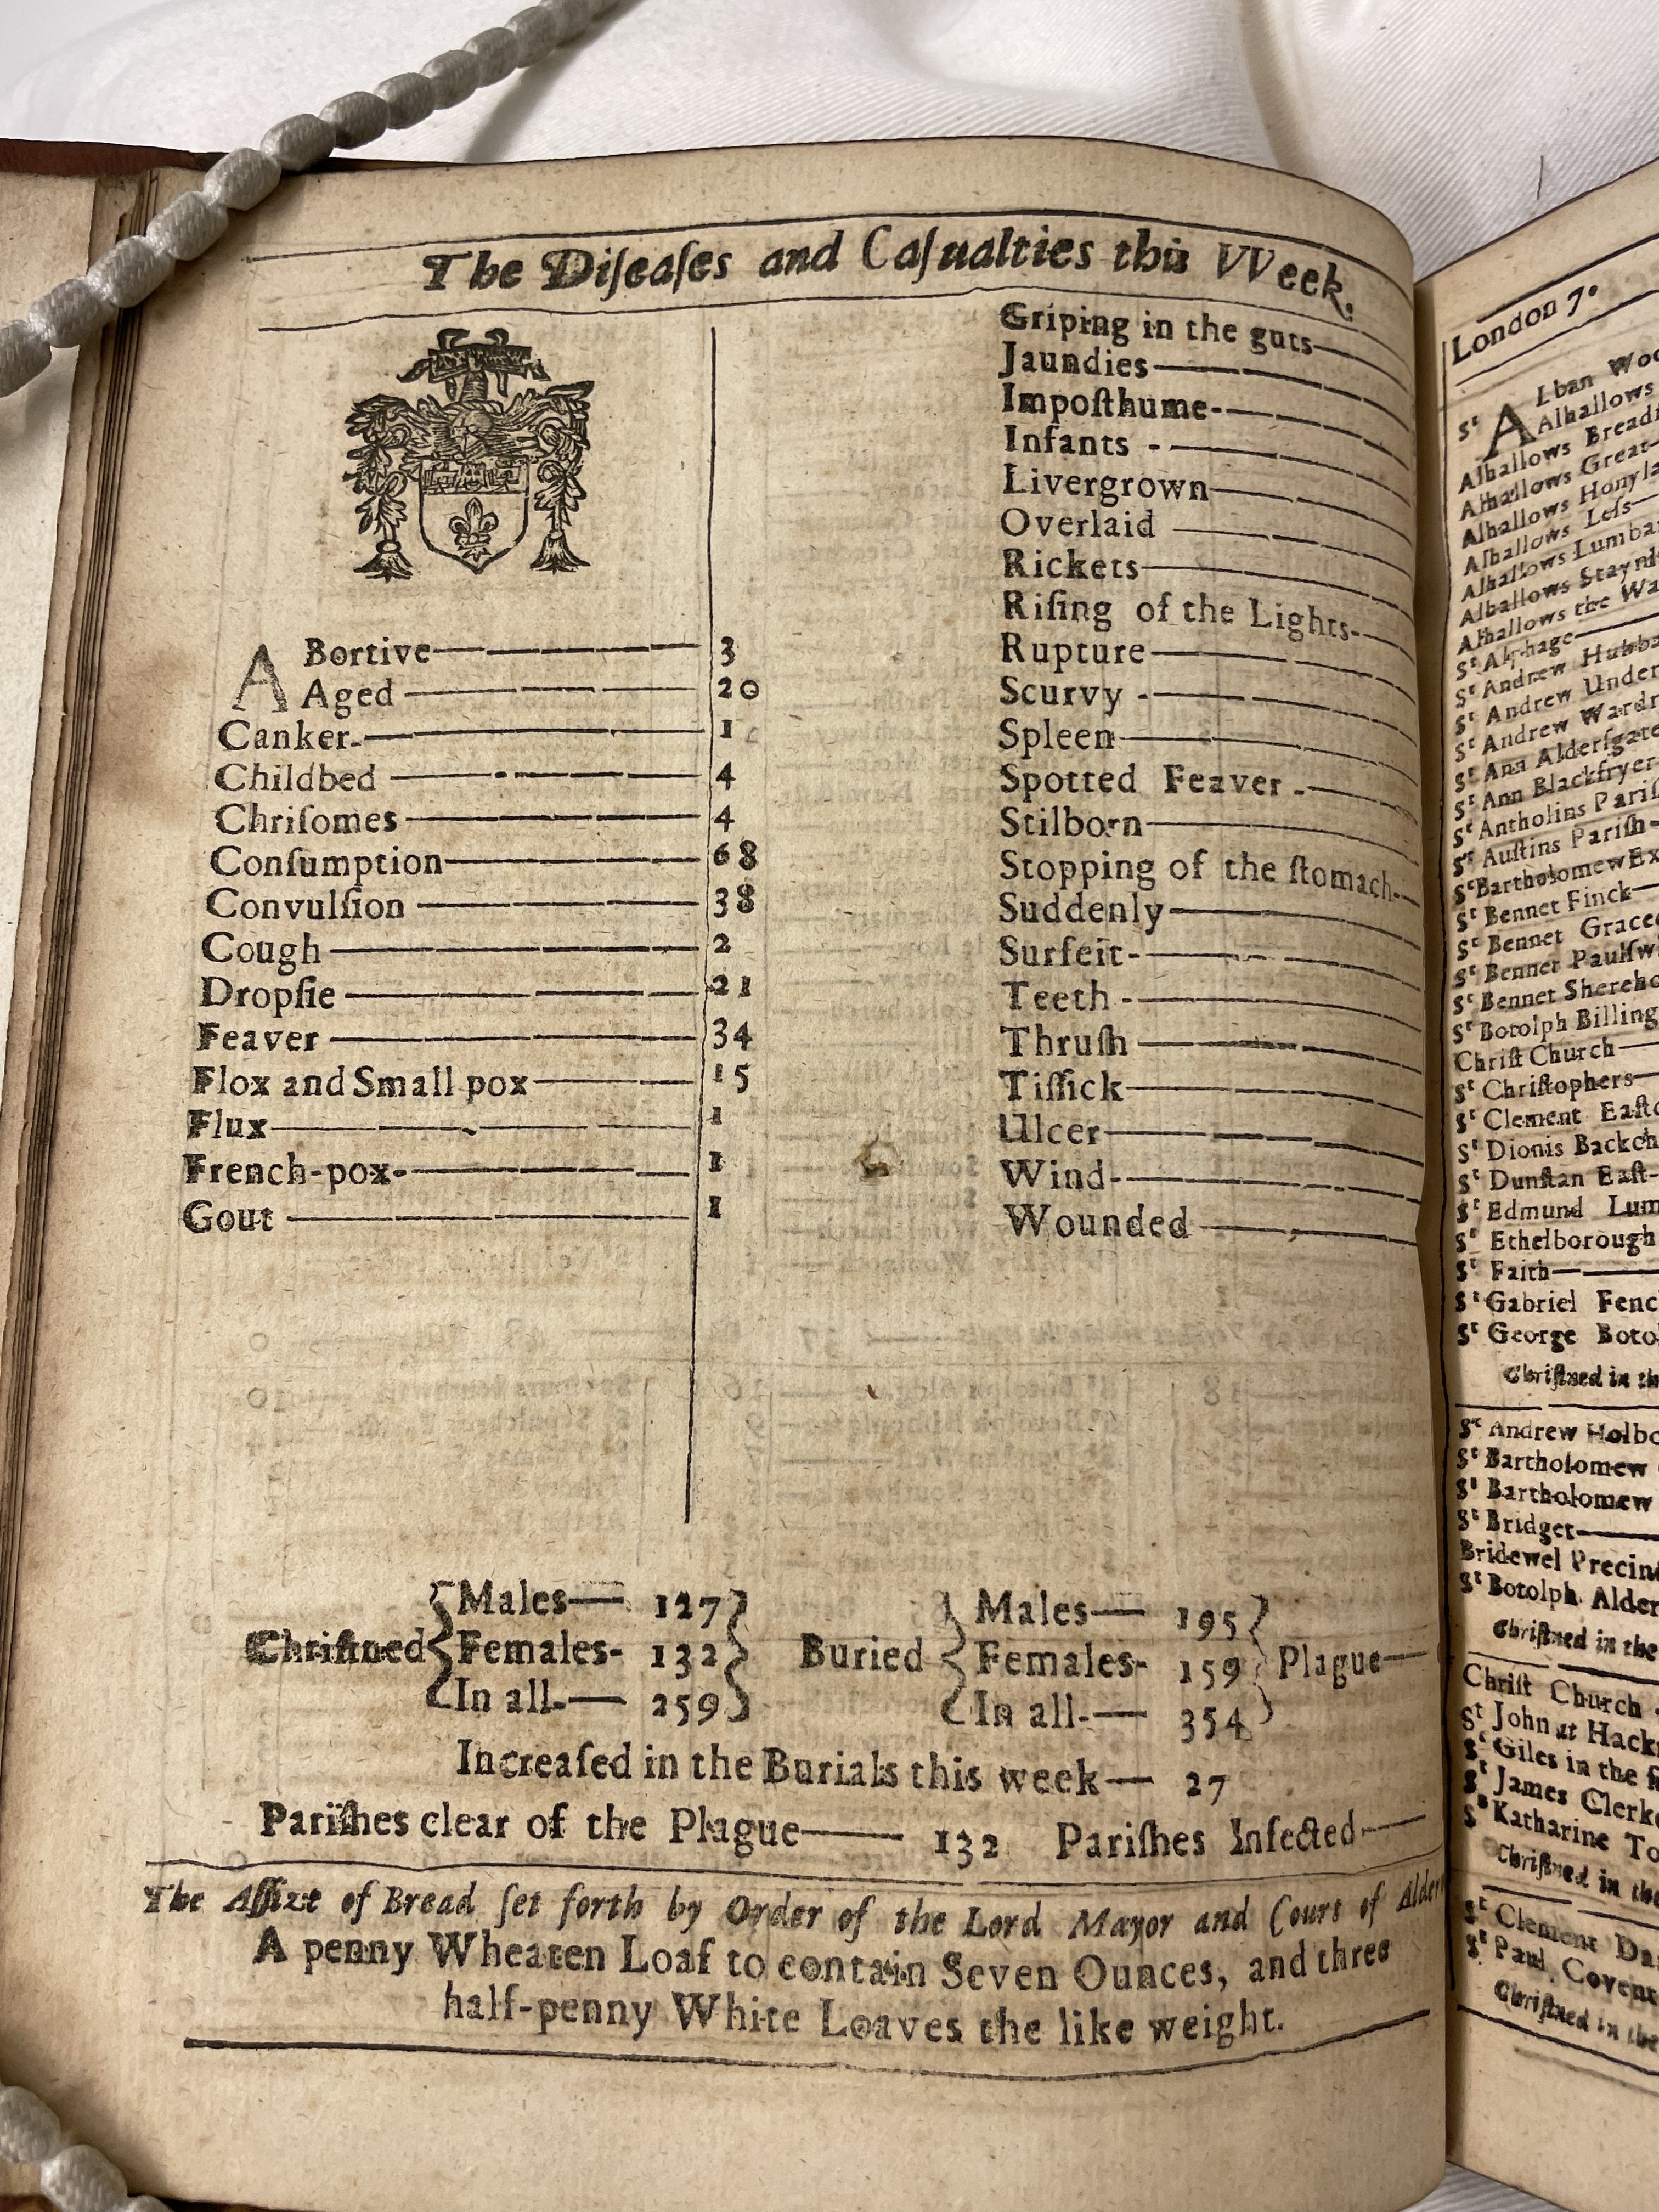 The Diſeaſes and Caſualties this VVeek.
ABortive 3
Aged 20
Canker 1
Childbed 4
Chriſomes 4
Conſumption 68
Convulſion 38
Cough 2
Dropſie 21
Feaver 34
Flox and Small pox 15
Flux 1
French-pox 1
Gout 1
Griping in the guts
Jaundies
Impoſthume
Infants
Livergrown
Overlaid
Rickets
Riſing of the Lights
Rupture
Scurvy
Spleen
Spotted Feaver
Stilborn
Stopping of the ſtomach
Suddenly
Surfeit
Teeth
Thruſh
Tiſſick
Ulcer
Wind
Wounded
Chriſtned
Males 127
Females 132
In all 259
Buried
Males 195
Females 159
In all 354
Plague
Increaſed in the Burials this week 27
Pariſhes clear of the Plague 132 Pariſhes Infected
The Aſſize of Bread ſet forth by Order of the Lord Mayor and Court of
A penny Wheaten Loaf to contain Seven Ounces, and three
half-penny White Loaves the like weight.
London 7°
Sᵗ ALban
Alhallows
Alhallows
Alhallows Great
Alhallows
Alhallows Leſs
Alhallows
Alhallows
Alhallows the
Sᵗ Alphage
Sᵗ Andrew
Sᵗ Andrew
Sᵗ Andrew
Sᵗ Ann
Sᵗ Ann
Sᵗ Antholins
Sᵗ Auſtins Pariſh
Sᵗ Bartholomew
Sᵗ Bennet Finck
Sᵗ Bennet
Sᵗ Bennet
Sᵗ Bennet
Sᵗ Botolph
Chriſt Church
Sᵗ Chriſtophers
Sᵗ Clement
Sᵗ Dionis
Sᵗ Dunſtan Eaſt
Sᵗ Edmund
Sᵗ Ethelborough
Sᵗ Faith
Sᵗ Gabriel
Sᵗ George
Chriſtned in
Sᵗ Andrew
Sᵗ Bartholomew
Sᵗ Bartholomew
Sᵗ Bridget
Bridewel
Sᵗ Botolph
Chriſtned in the
Chriſt Church
St John at
Sᵗ Giles in the
Sᵗ James
Sᵗ Katharine
Chriſtned in
Sᵗ Clement
Sᵗ Paul
Chriſtned in